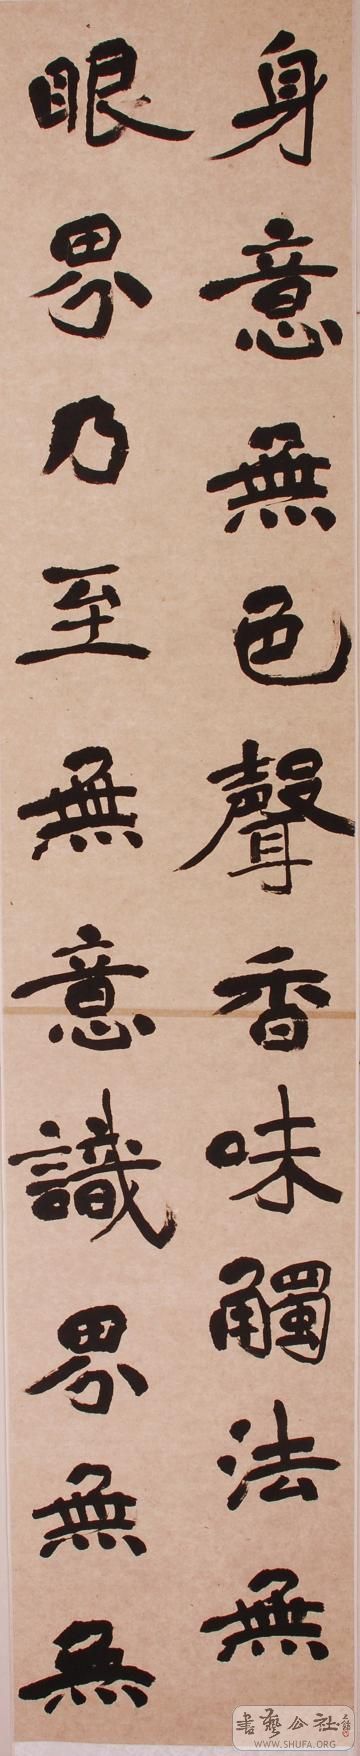 身意無色聲香味觸法無
眼界乃至無意識界無無
書藝公社
WWW.SHUFA.ORG